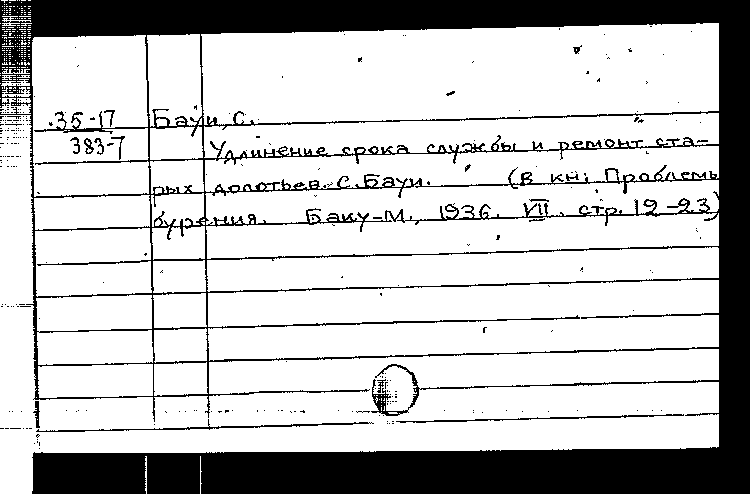 35-17 Бауи, С.
383-7 Удлинение срока службы и ремонт ста-
рых долотьев. С. Бауи. (В кн: Проблемы
бурения. Баку-М., 1936. VII. стр. 12-23)